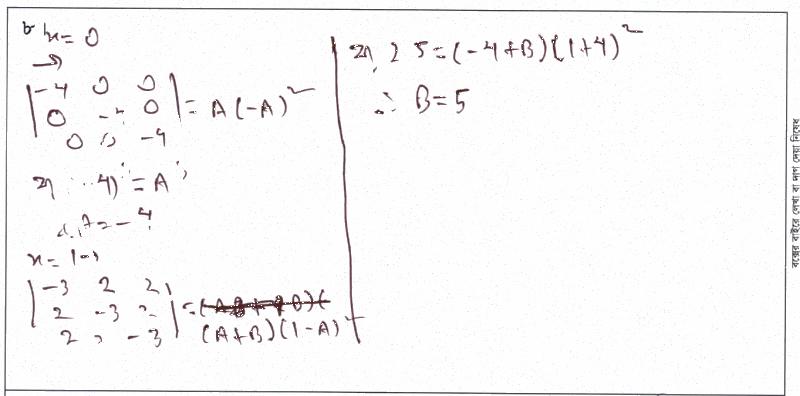 x = 0
→
| -4 0 0 |
| 0 -4 0 | = A (-A)²
| 0 0 -4 |
বা, (-4)³ = A³
∴ A = -4
x = 1 →
| -3 2 2 |
| 2 -3 2 | =
| 2 2 -3 | (A+B) (1-A)²
বা, 25 = (-4+B) (1+4)²
∴ B = 5
বক্সের বাইরে লেখা বা দাগ দেয়া নিষেধ